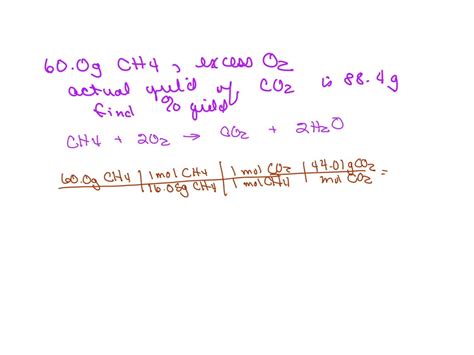 60.0g CH4, excess O2
actual yield of CO2 is 88.4g
find % yield
CH4 + 2O2 → CO2 + 2H2O
60.0g CH4 | 1 mol CH4 | 1 mol CO2 | 44.01gCO2 =
16.05g CH4 | 1 mol CH4 | mol CO2